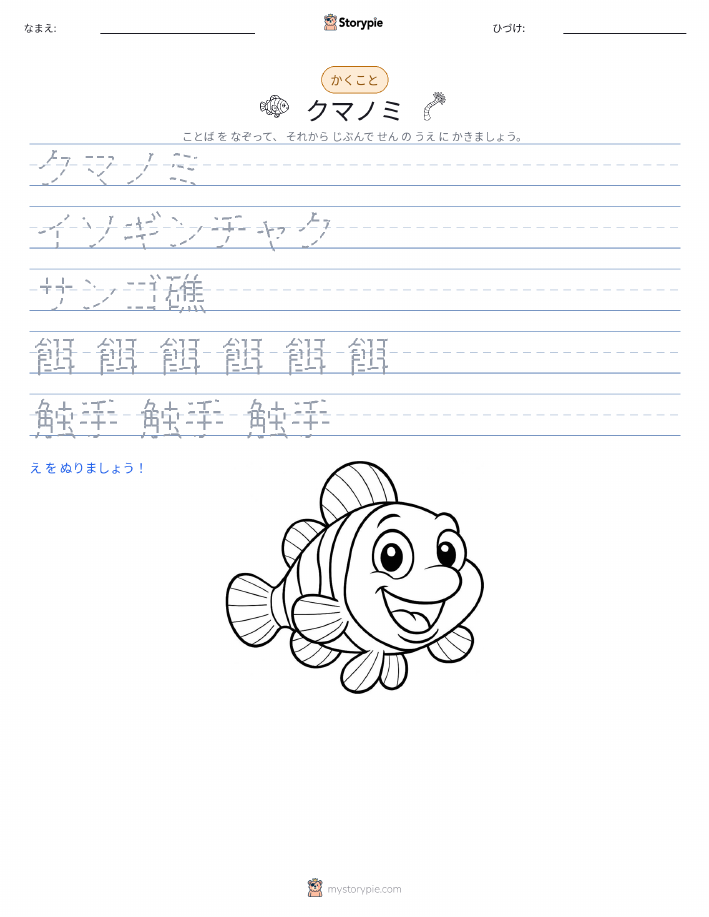 なまえ:
Storypie
ひづけ:
かくこと
クマノミ
ことば を なぞって、 それから じぶんで せん の うえ に かきましょう。
クマノミ
イソギンチャク
サンゴ礁
餌 餌 餌 餌 餌 餌
触手 触手 触手
え を ぬりましょう！
mystorypie.com